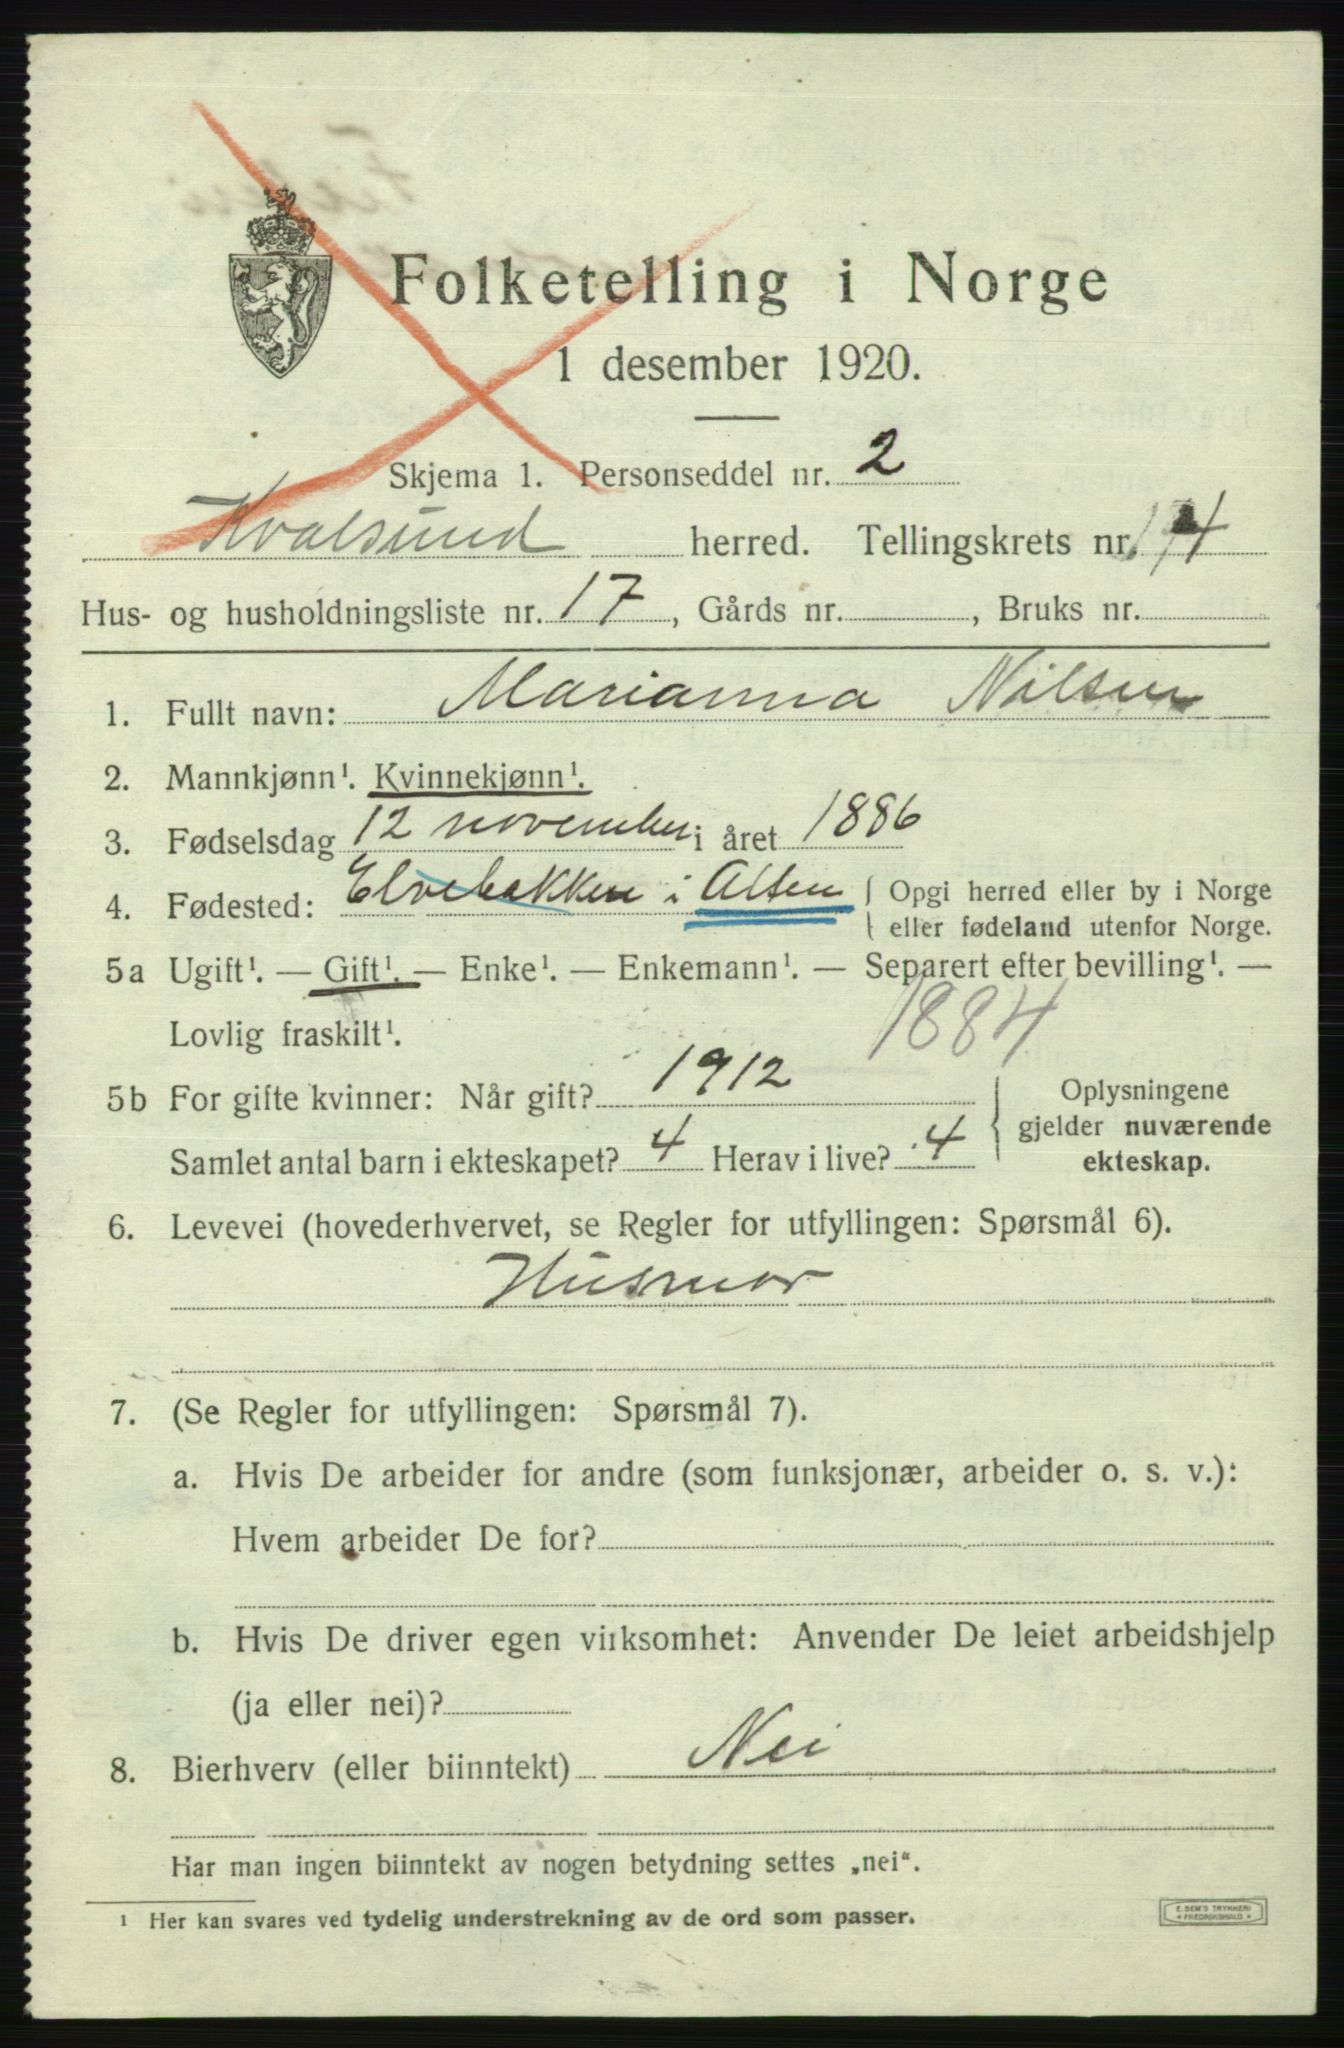 Folketelling i Norge
1 desember 1920.
Skjema 1. Personseddel nr. 2
Kvalsund herred. Tellingskrets nr. 4
Hus- og husholdningsliste nr. 17, Gårds nr. , Bruks nr.
1. Fullt navn: Marianna Nilsen
2. Mannkjønn¹. Kvinnekjønn¹.
3. Fødselsdag 12 november i året 1886
4. Fødested: Elvebakken i Alten { Opgi herred eller by i Norge
eller fødeland utenfor Norge.
5a Ugift¹. — Gift¹. — Enke¹. — Enkemann¹. — Separert efter bevilling¹. —
Lovlig fraskilt¹. 1884
5b For gifte kvinner: Når gift? 1912 Oplysningene
gjelder nuværende
Samlet antal barn i ekteskapet? 4 Herav i live? 4 ekteskap.
6. Levevei (hovederhvervet, se Regler for utfyllingen: Spørsmål 6).
Husmor
7. (Se Regler for utfyllingen: Spørsmål 7).
a. Hvis De arbeider for andre (som funksjonær, arbeider o. s. v.):
Hvem arbeider De for?
b. Hvis De driver egen virksomhet: Anvender De leiet arbeidshjelp
(ja eller nei)?
8. Bierhverv (eller biinntekt) Nei
Har man ingen biinntekt av nogen betydning settes „nei“.
¹ Her kan svares ved tydelig understrekning av de ord som passer.
E. SEM'S TRYKKERI
* FREDRIKSHALD *